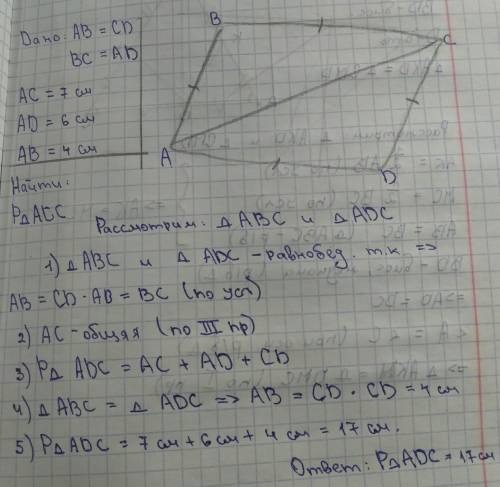 Дано: AB = CD
BC = AD
AC = 7 см
AD = 6 см
AB = 4 см
Найти:
P△ADC
B
C
A
D
Рассмотрим: △ ABC и △ ADC
1) △ ABC и △ ADC - равнобед. т.к. =>
AB = CD · AB = BC (по усл)
2) AC - общая (по III пр)
3) P△ ADC = AC + AD + CD
4) △ ABC = △ ADC => AB = CD · CD = 4 см
5) P△ ADC = 7 см + 6 см + 4 см = 17 см.
Ответ: P△ADC = 17 см